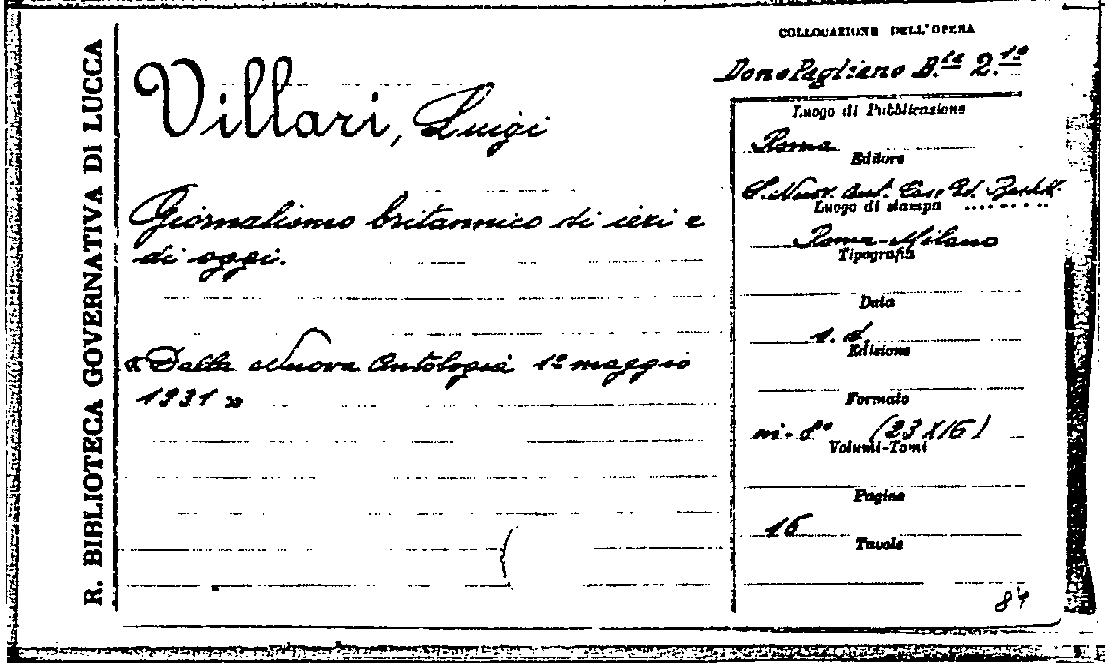 R. BIBLIOTECA GOVERNATIVA DI LUCCA
Villari, Luigi
Giornalismo britannico di ieri e
di oggi.
« Dalla Nuova Antologia 1º maggio
1931 »
COLLOCAZIONE DELL'OPERA
Dono Pagliano B.ta 2.1º
Luogo di Pubblicazione
Roma
Editore
S. Nuov. Ant. Casa Ed.
Luogo di stampa
Roma-Milano
Tipografia
Data
s. d.
Edizione
Formato
in-8º (23X16)
Volumi-Tomi
Pagine
16
Tavole
84